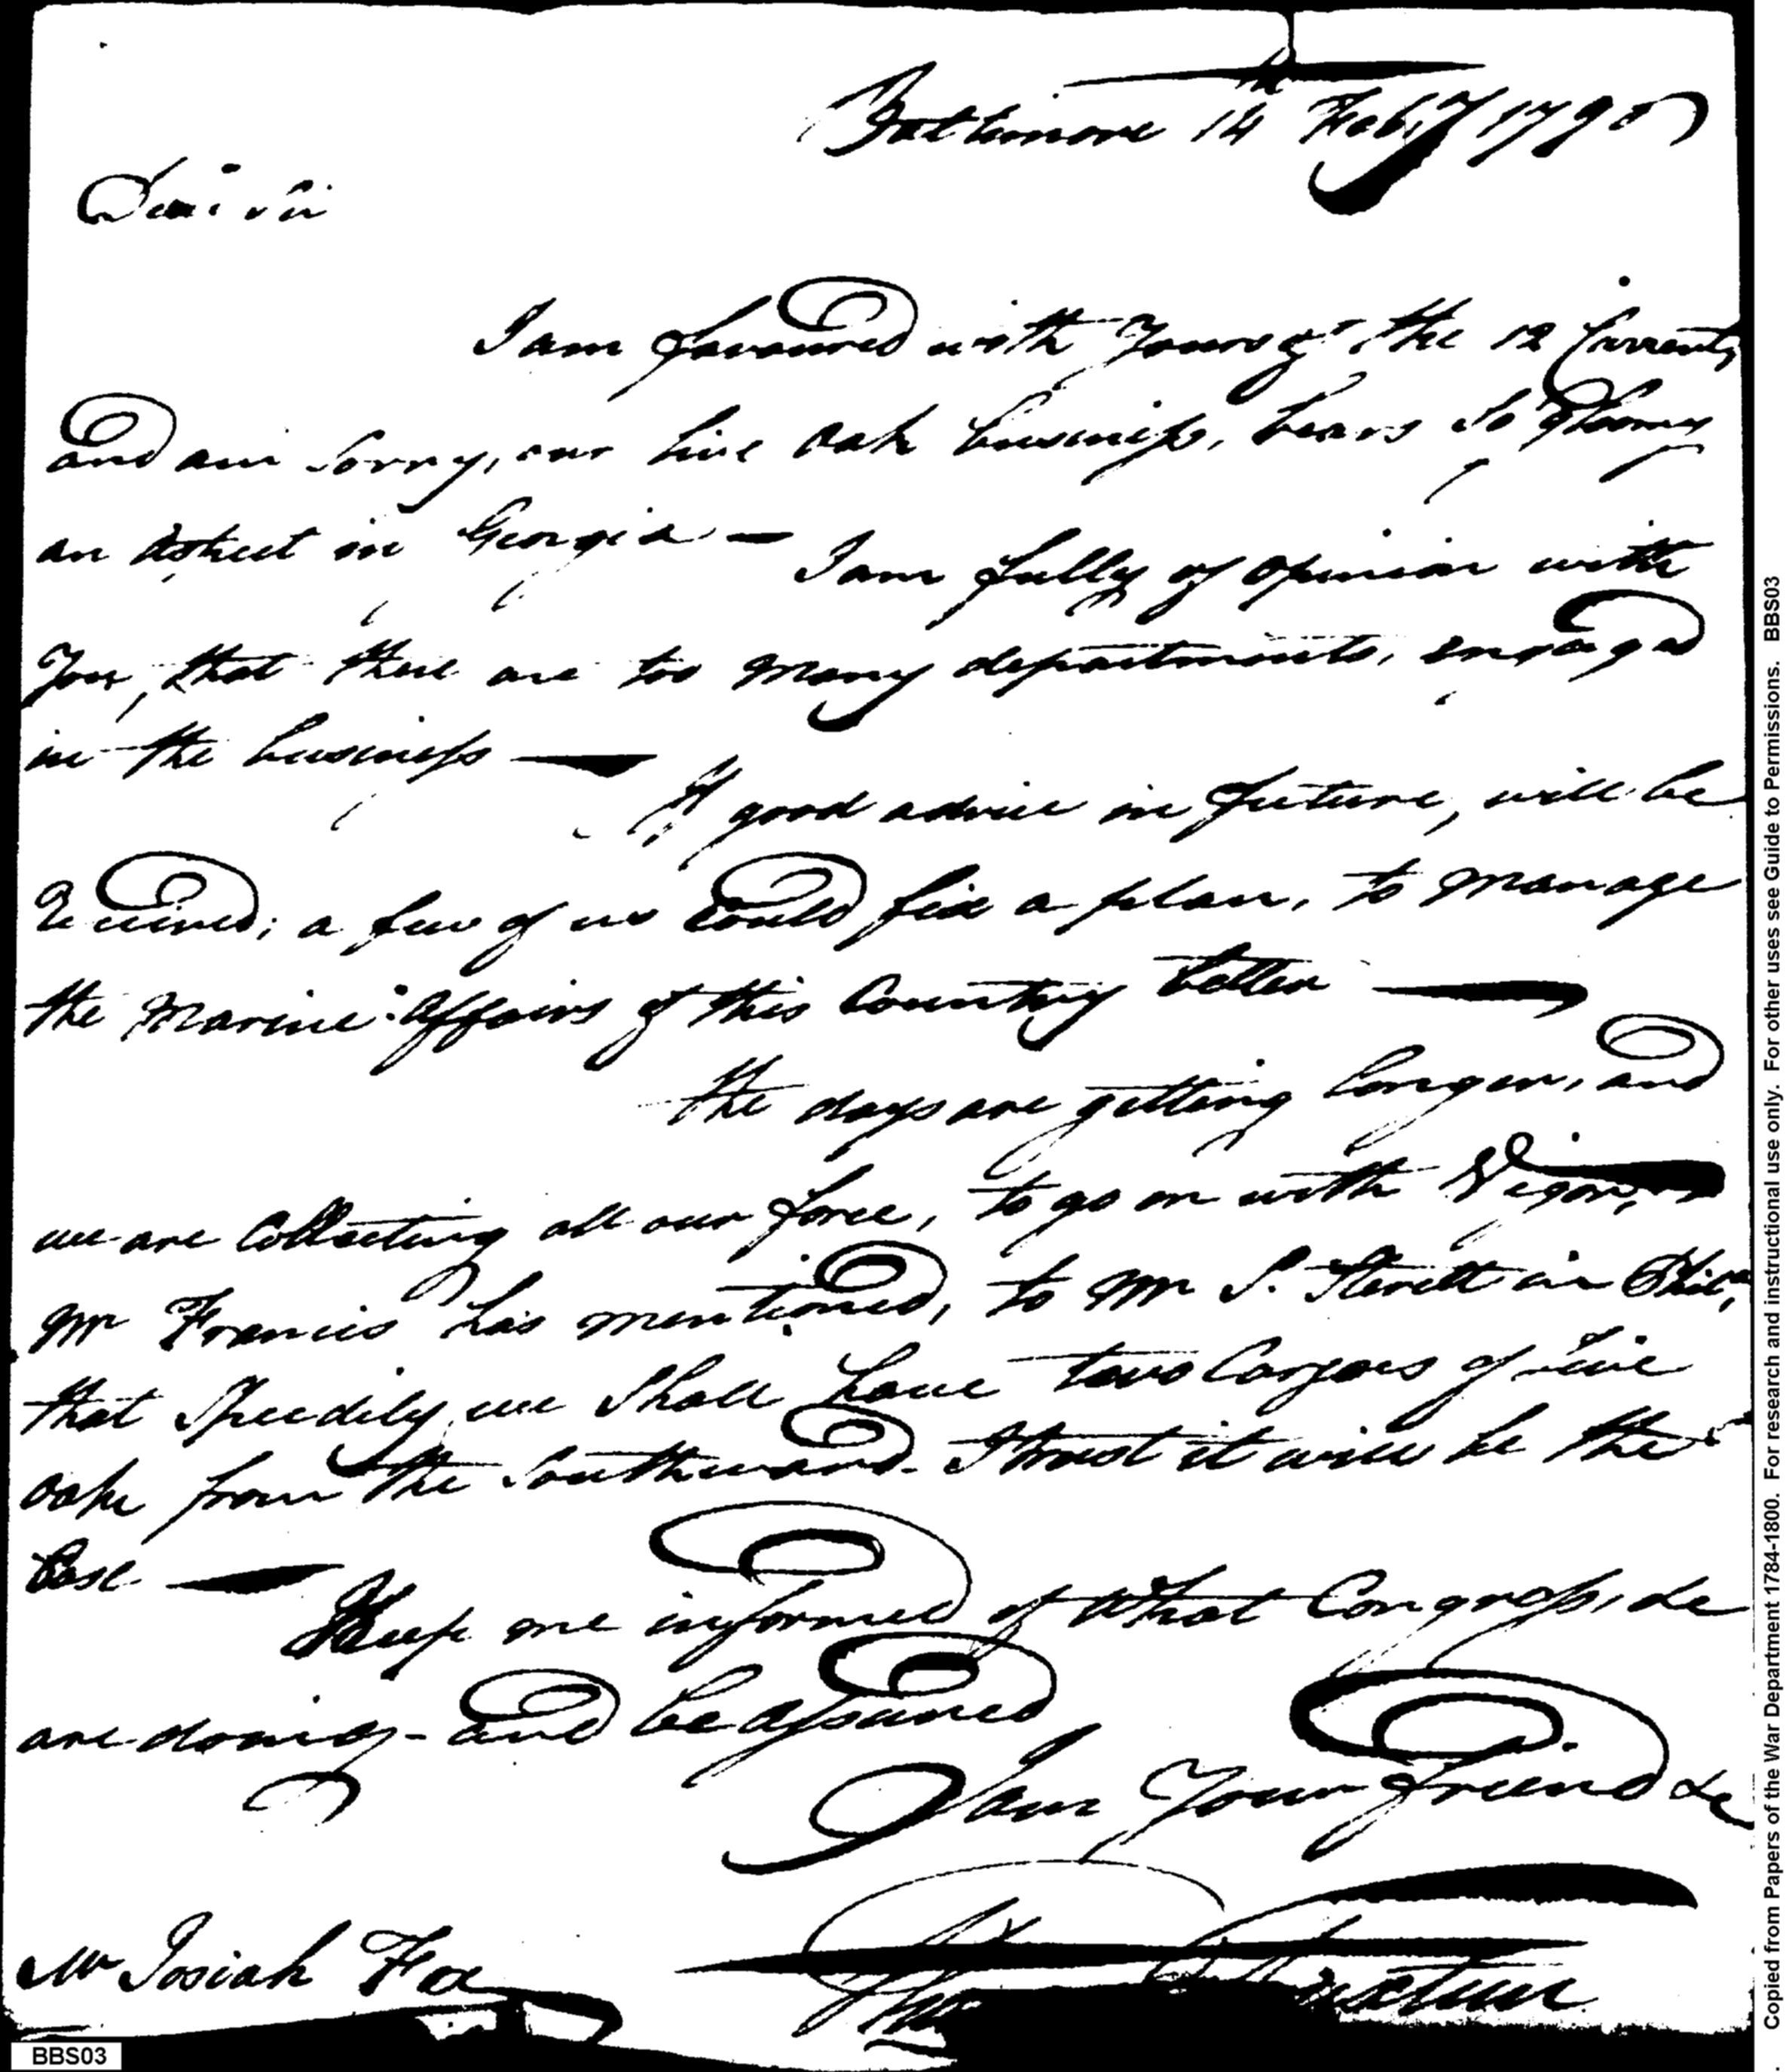 Baltimore 14th Feby 1795
Dear Sir
I am favoured with Yours of the 12 Current,
and am Sorry, our live Oak business, bears So Gloomy
an aspect in Georgia — I am fully of Opinion with
You, that there are too Many departments, engaged
in the business — If good advice in future, will be
Received; a few of us Could fix a plan, to Manage
the Marine Affairs of this Country better —
the days are getting longer, and
we are Collecting all our force, to go on with Vigor,
Mr Francis has mentioned, to Mr S. Sterett in Phila,
that Speedily we Shall have two Cargoes of Live
Oak from the Southward - I trust it will be the
Case — Keep me informed of What Congress, &c
are doing - and be assured
I am Your friend &c
Mr Josiah Fox
BBS03
Copied from Papers of the War Department 1784-1800. For research and instructional use only. For other uses see Guide to Permissions. BBS03